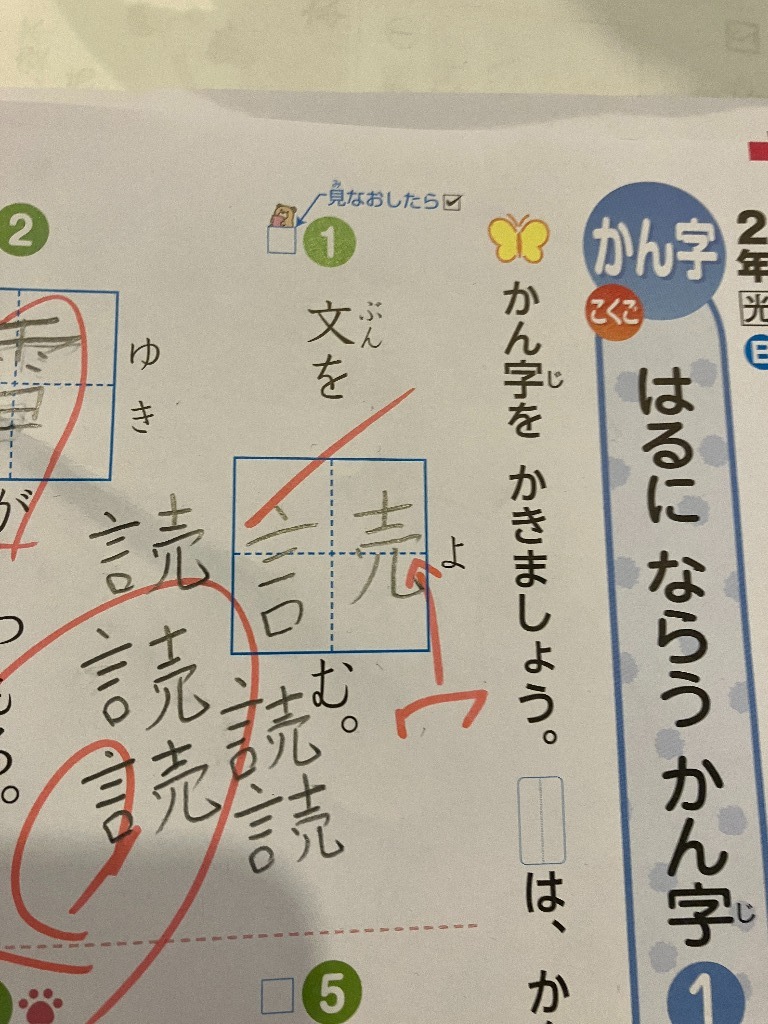 2年
光
かん字
こくご
はるに ならう かん字 1
じ
かん字を かきましょう。
じ
は、か
見なおしたら
み
1
文を
ぶん
読
よ
む。
読
読
読
読
読
2
雪
ゆき
が
5